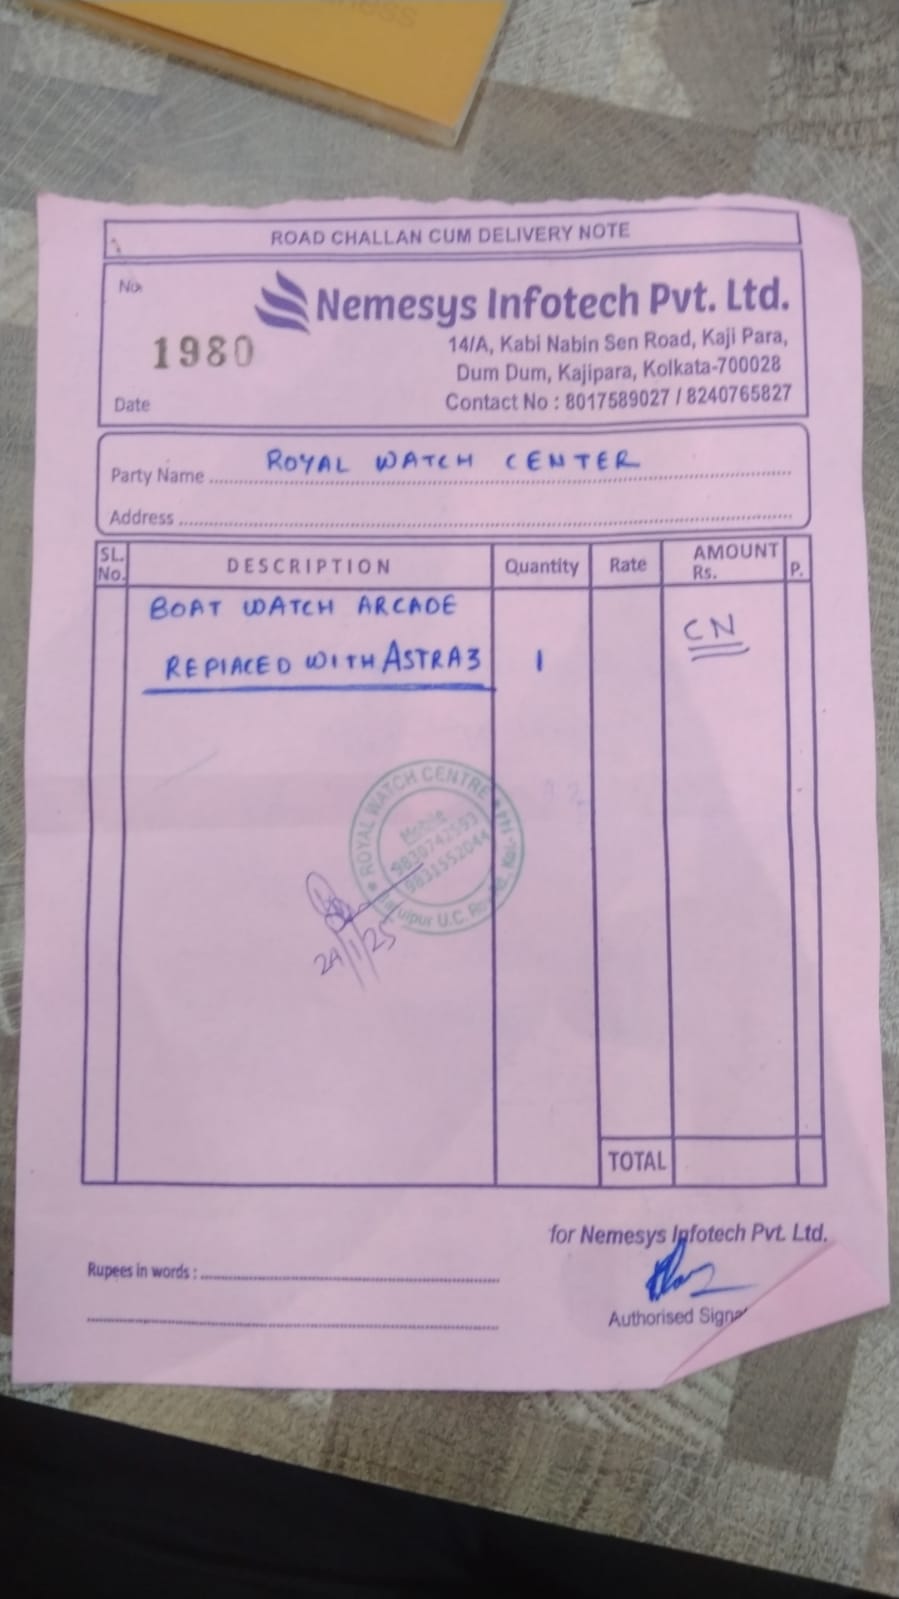 ness
ROAD CHALLAN CUM DELIVERY NOTE
No.
Nemesys Infotech Pvt. Ltd.
1980
14/A, Kabi Nabin Sen Road, Kaji Para,
Dum Dum, Kajipara, Kolkata-700028
Date
Contact No : 8017589027 / 8240765827
Party Name ROYAL WATCH CENTER
Address
SL. No. DESCRIPTION Quantity Rate AMOUNT Rs. P.
BOAT WATCH ARCADE
REPLACED WITH ASTRA3 1 CN
ROYAL WATCH CENTRE
Mobile
9830742593
9831552044
U.C. Kol.
24/1/25
TOTAL
for Nemesys Infotech Pvt. Ltd.
Rupees in words :
Authorised